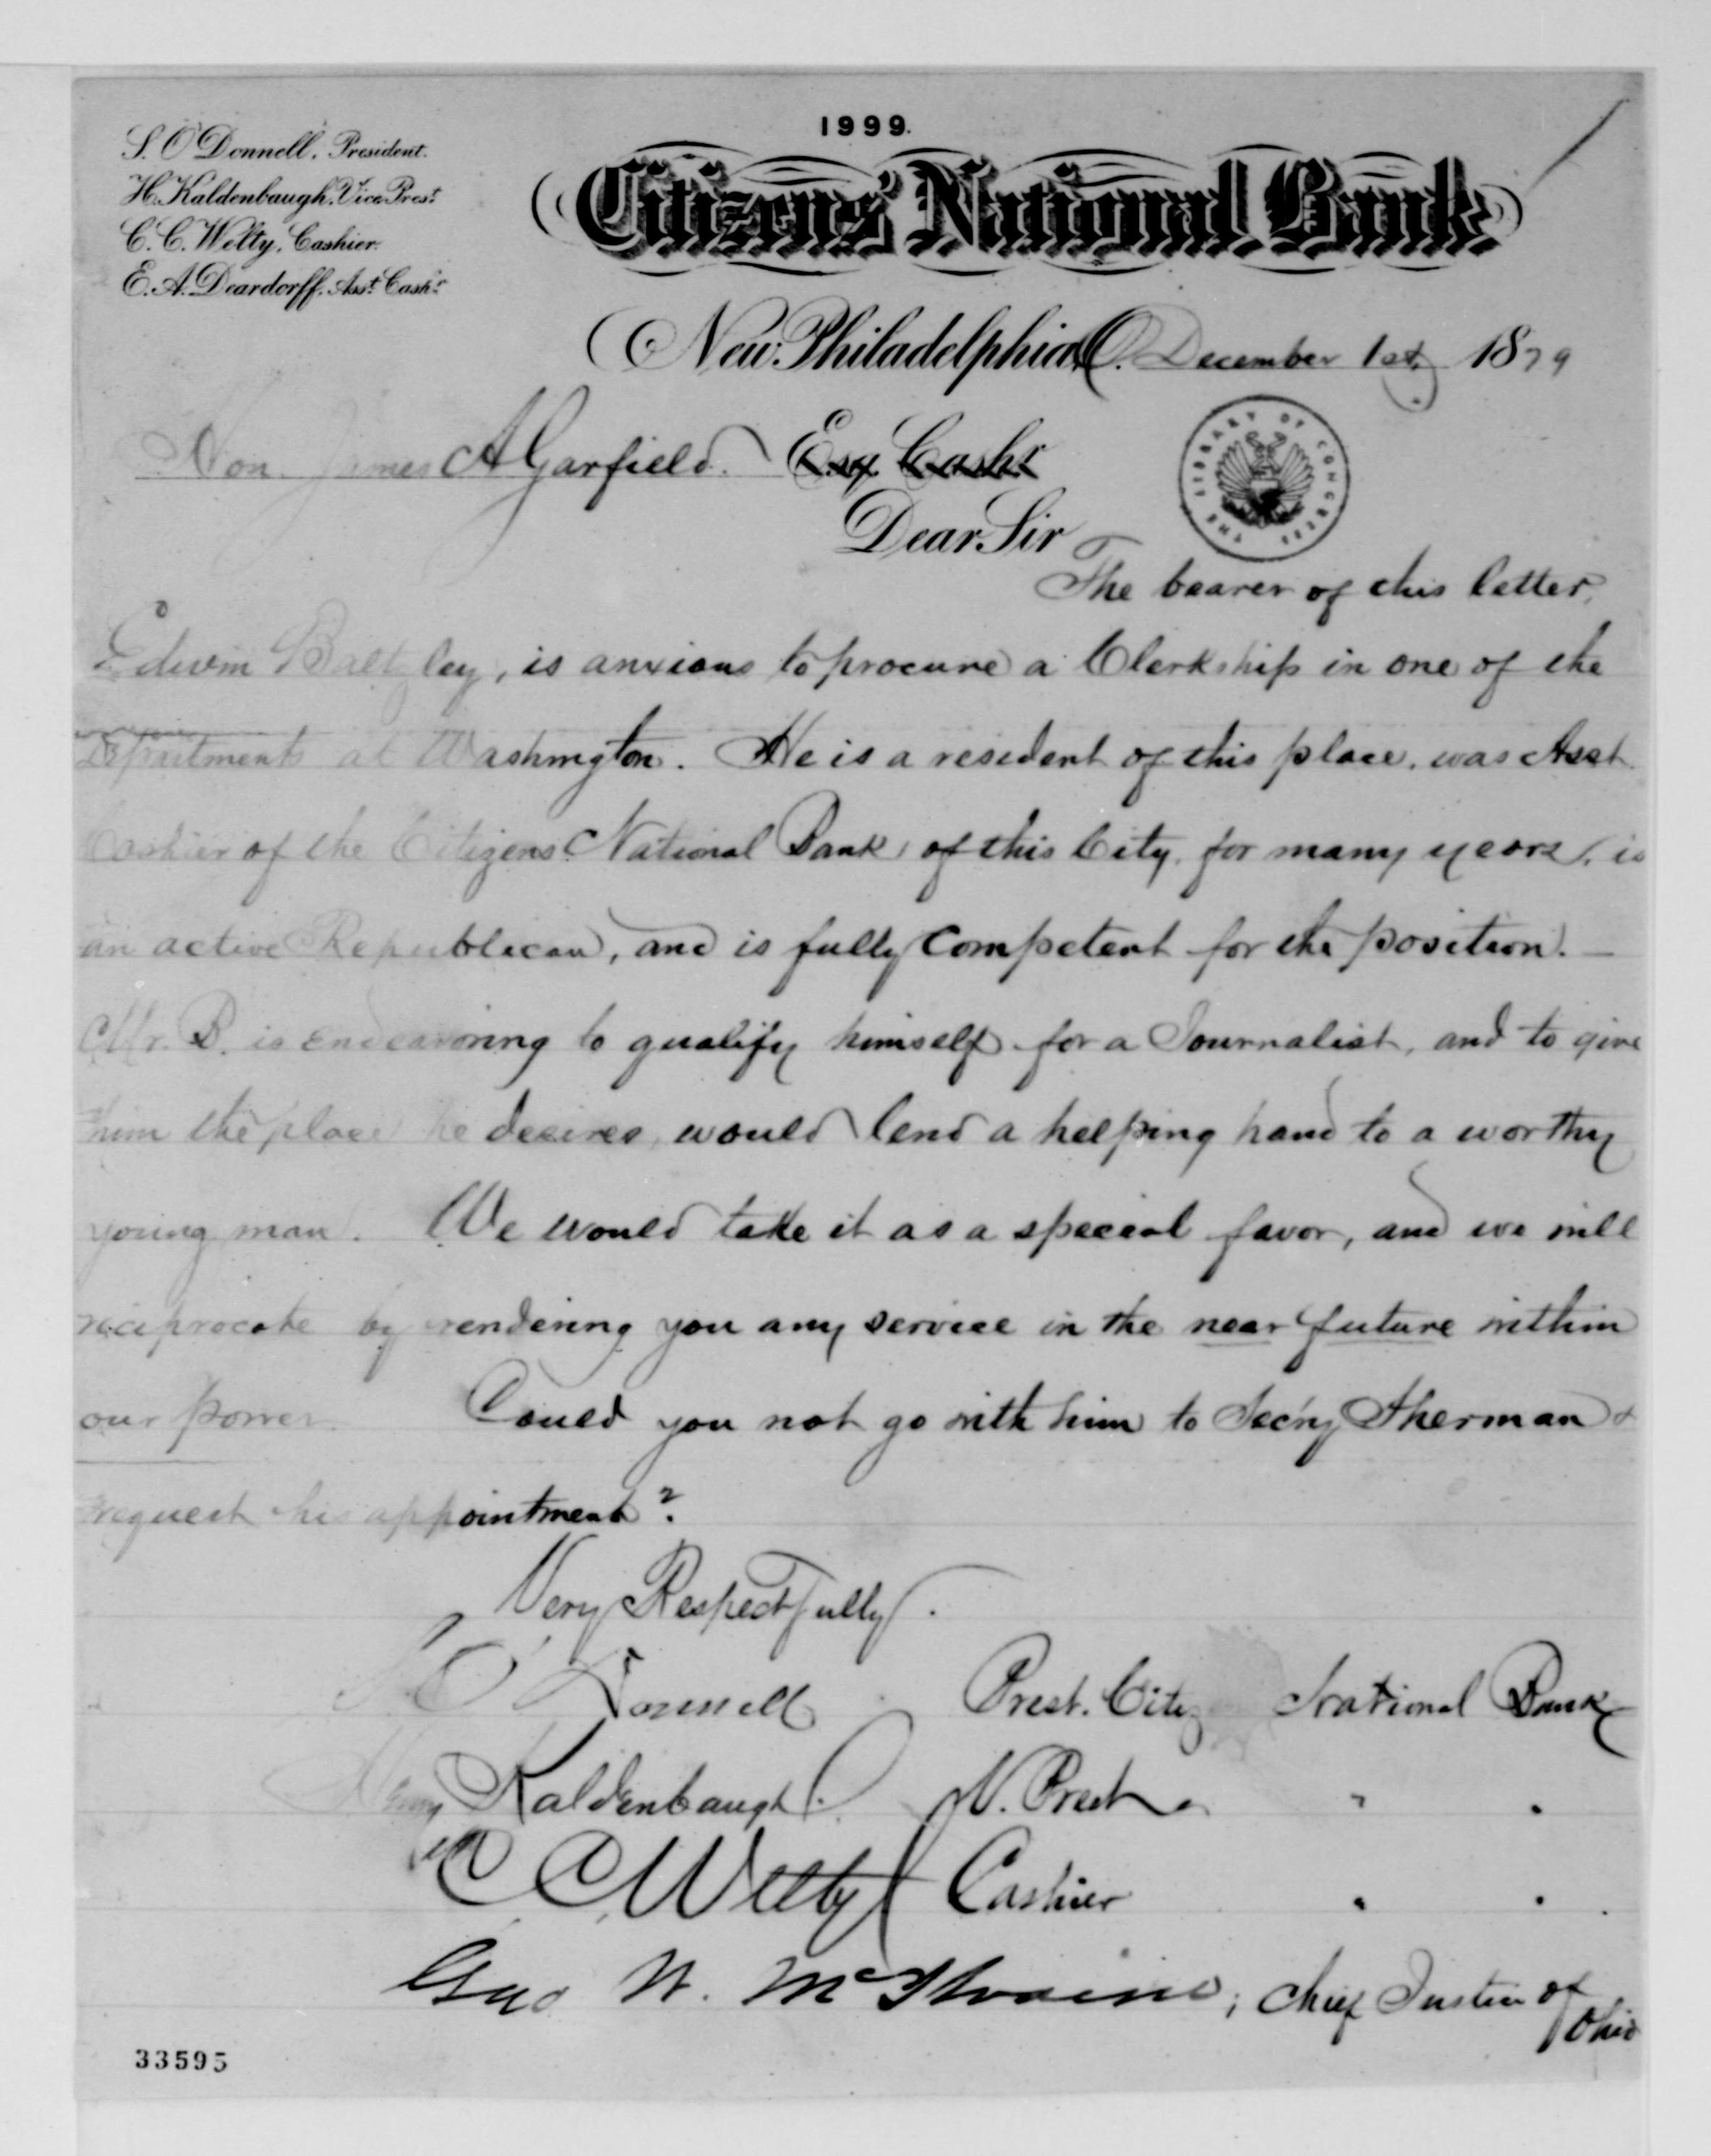 S. O'Donnell, President.
H. Kaldenbaugh, Vice Prest.
C. C. Welty, Cashier.
E. A. Deardorff, Asst. Cashr.
1999.
Citizens' National Bank
New Philadelphia, O. December 1st, 1879
Hon. James A Garfield. Esq. Cashr
Dear Sir
THE LIBRARY OF CONGRESS
The bearer of this letter,
Edwin Baltzley, is anxious to procure a Clerkship in one of the
departments at Washington. He is a resident of this place, was Asst
Cashier of the Citizens National Bank, of this City, for many years, is
an active Republican, and is fully competent for the position. —
Mr. B. is endeavoring to qualify himself for a Journalist, and to give
him the place he desires, would lend a helping hand to a worthy
young man. We would take it as a special favor, and we will
reciprocate by rendering you any service in the near future within
our power Could you not go with him to Secy Sherman &
request his appointment?
Very Respectfully.
S. O'Donnell Prest. Citiz National Bank
Henry Kaldenbaugh. V. Prest " "
C C Welty Cashier " "
Geo W. McIlvaine; Chief Justice of
Ohio
33595